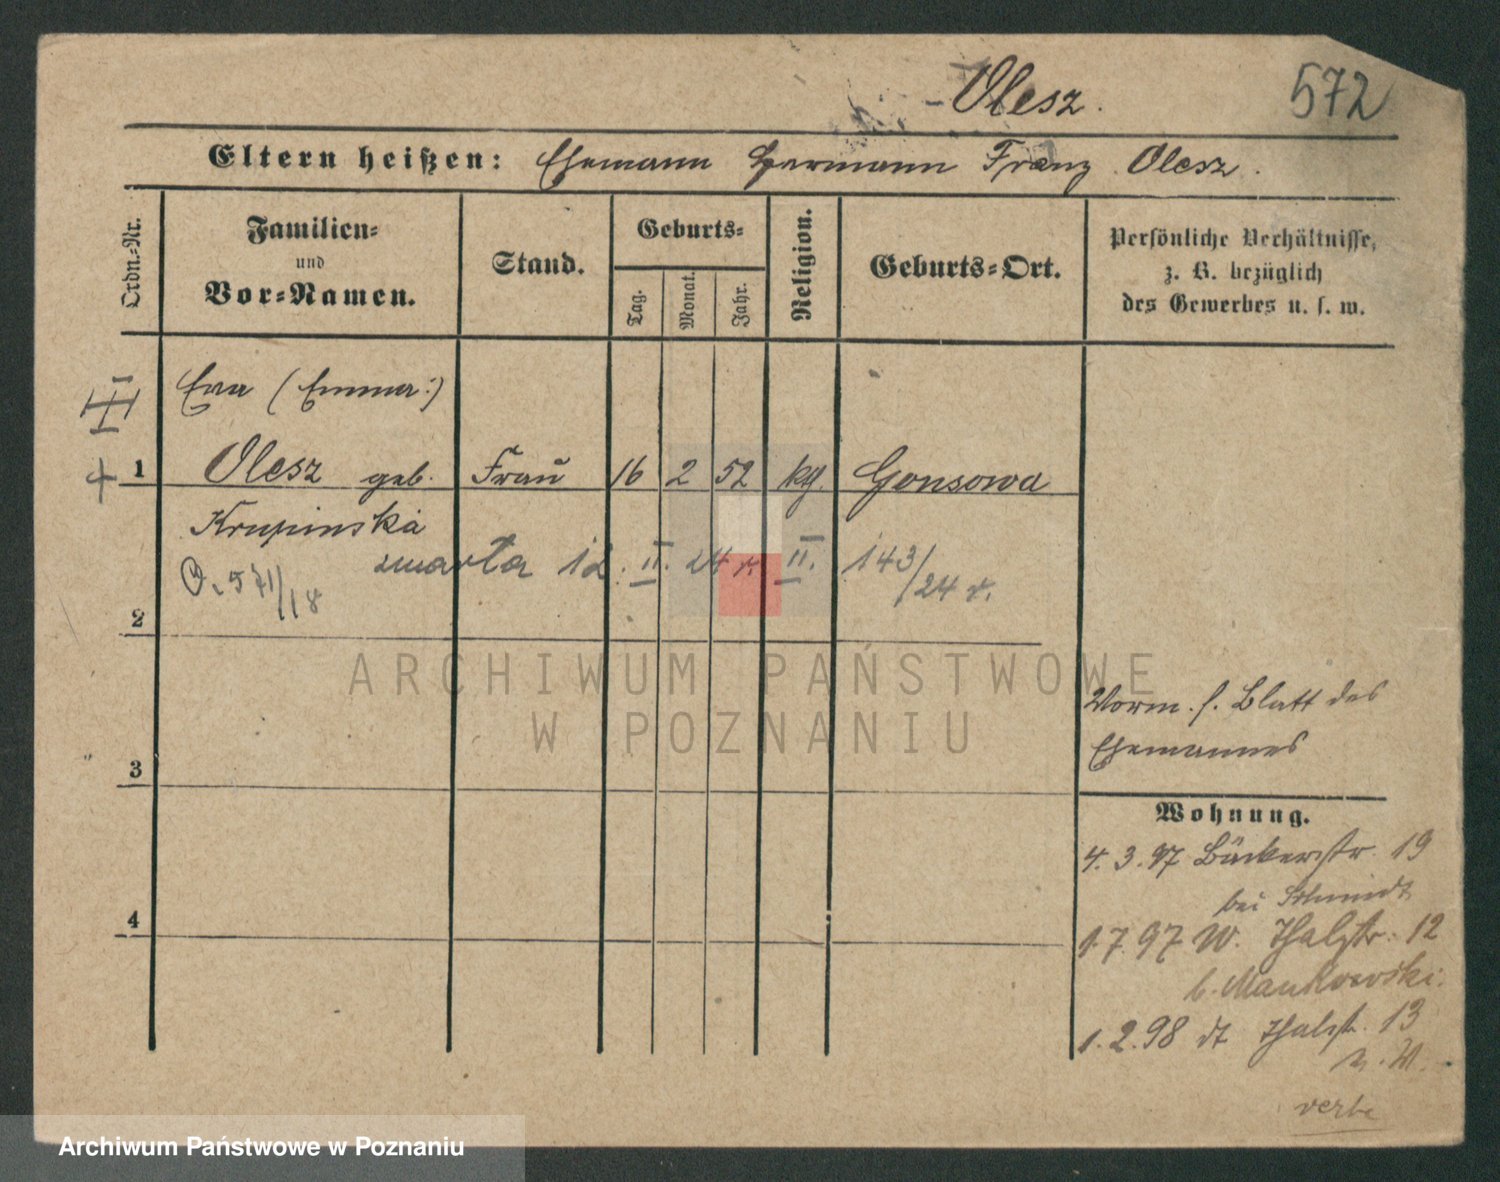 Olesz.
572
Eltern heißen: Ehemann Hermann Franz Olesz.
Ordn.=Nr.
Familien=
und
Vor=Namen.
Stand.
Geburts=
Tag.
Monat.
Jahr.
Religion.
Geburts=Ort.
Persönliche Verhältnisse,
z. B. bezüglich
des Gewerbes u. s. w.
Eva (Emma:)
1 Olesz geb. Frau 16 2 52 kg. Gonsowa
Krupinska
zmarła 12. II. 24 r. II. 143/24 r.
571/18
2
ARCHIWUM PAŃSTWOWE
W POZNANIU
Vorm. s. Blatt des
Ehemannes
3
Wohnung.
4. 3. 97 Bäckerstr. 19
bei Schmidt
4
1.7.97 W. Thalstr. 12
b. Mankowski.
1.2.98 dt Thalstr. 13
Archiwum Państwowe w Poznaniu